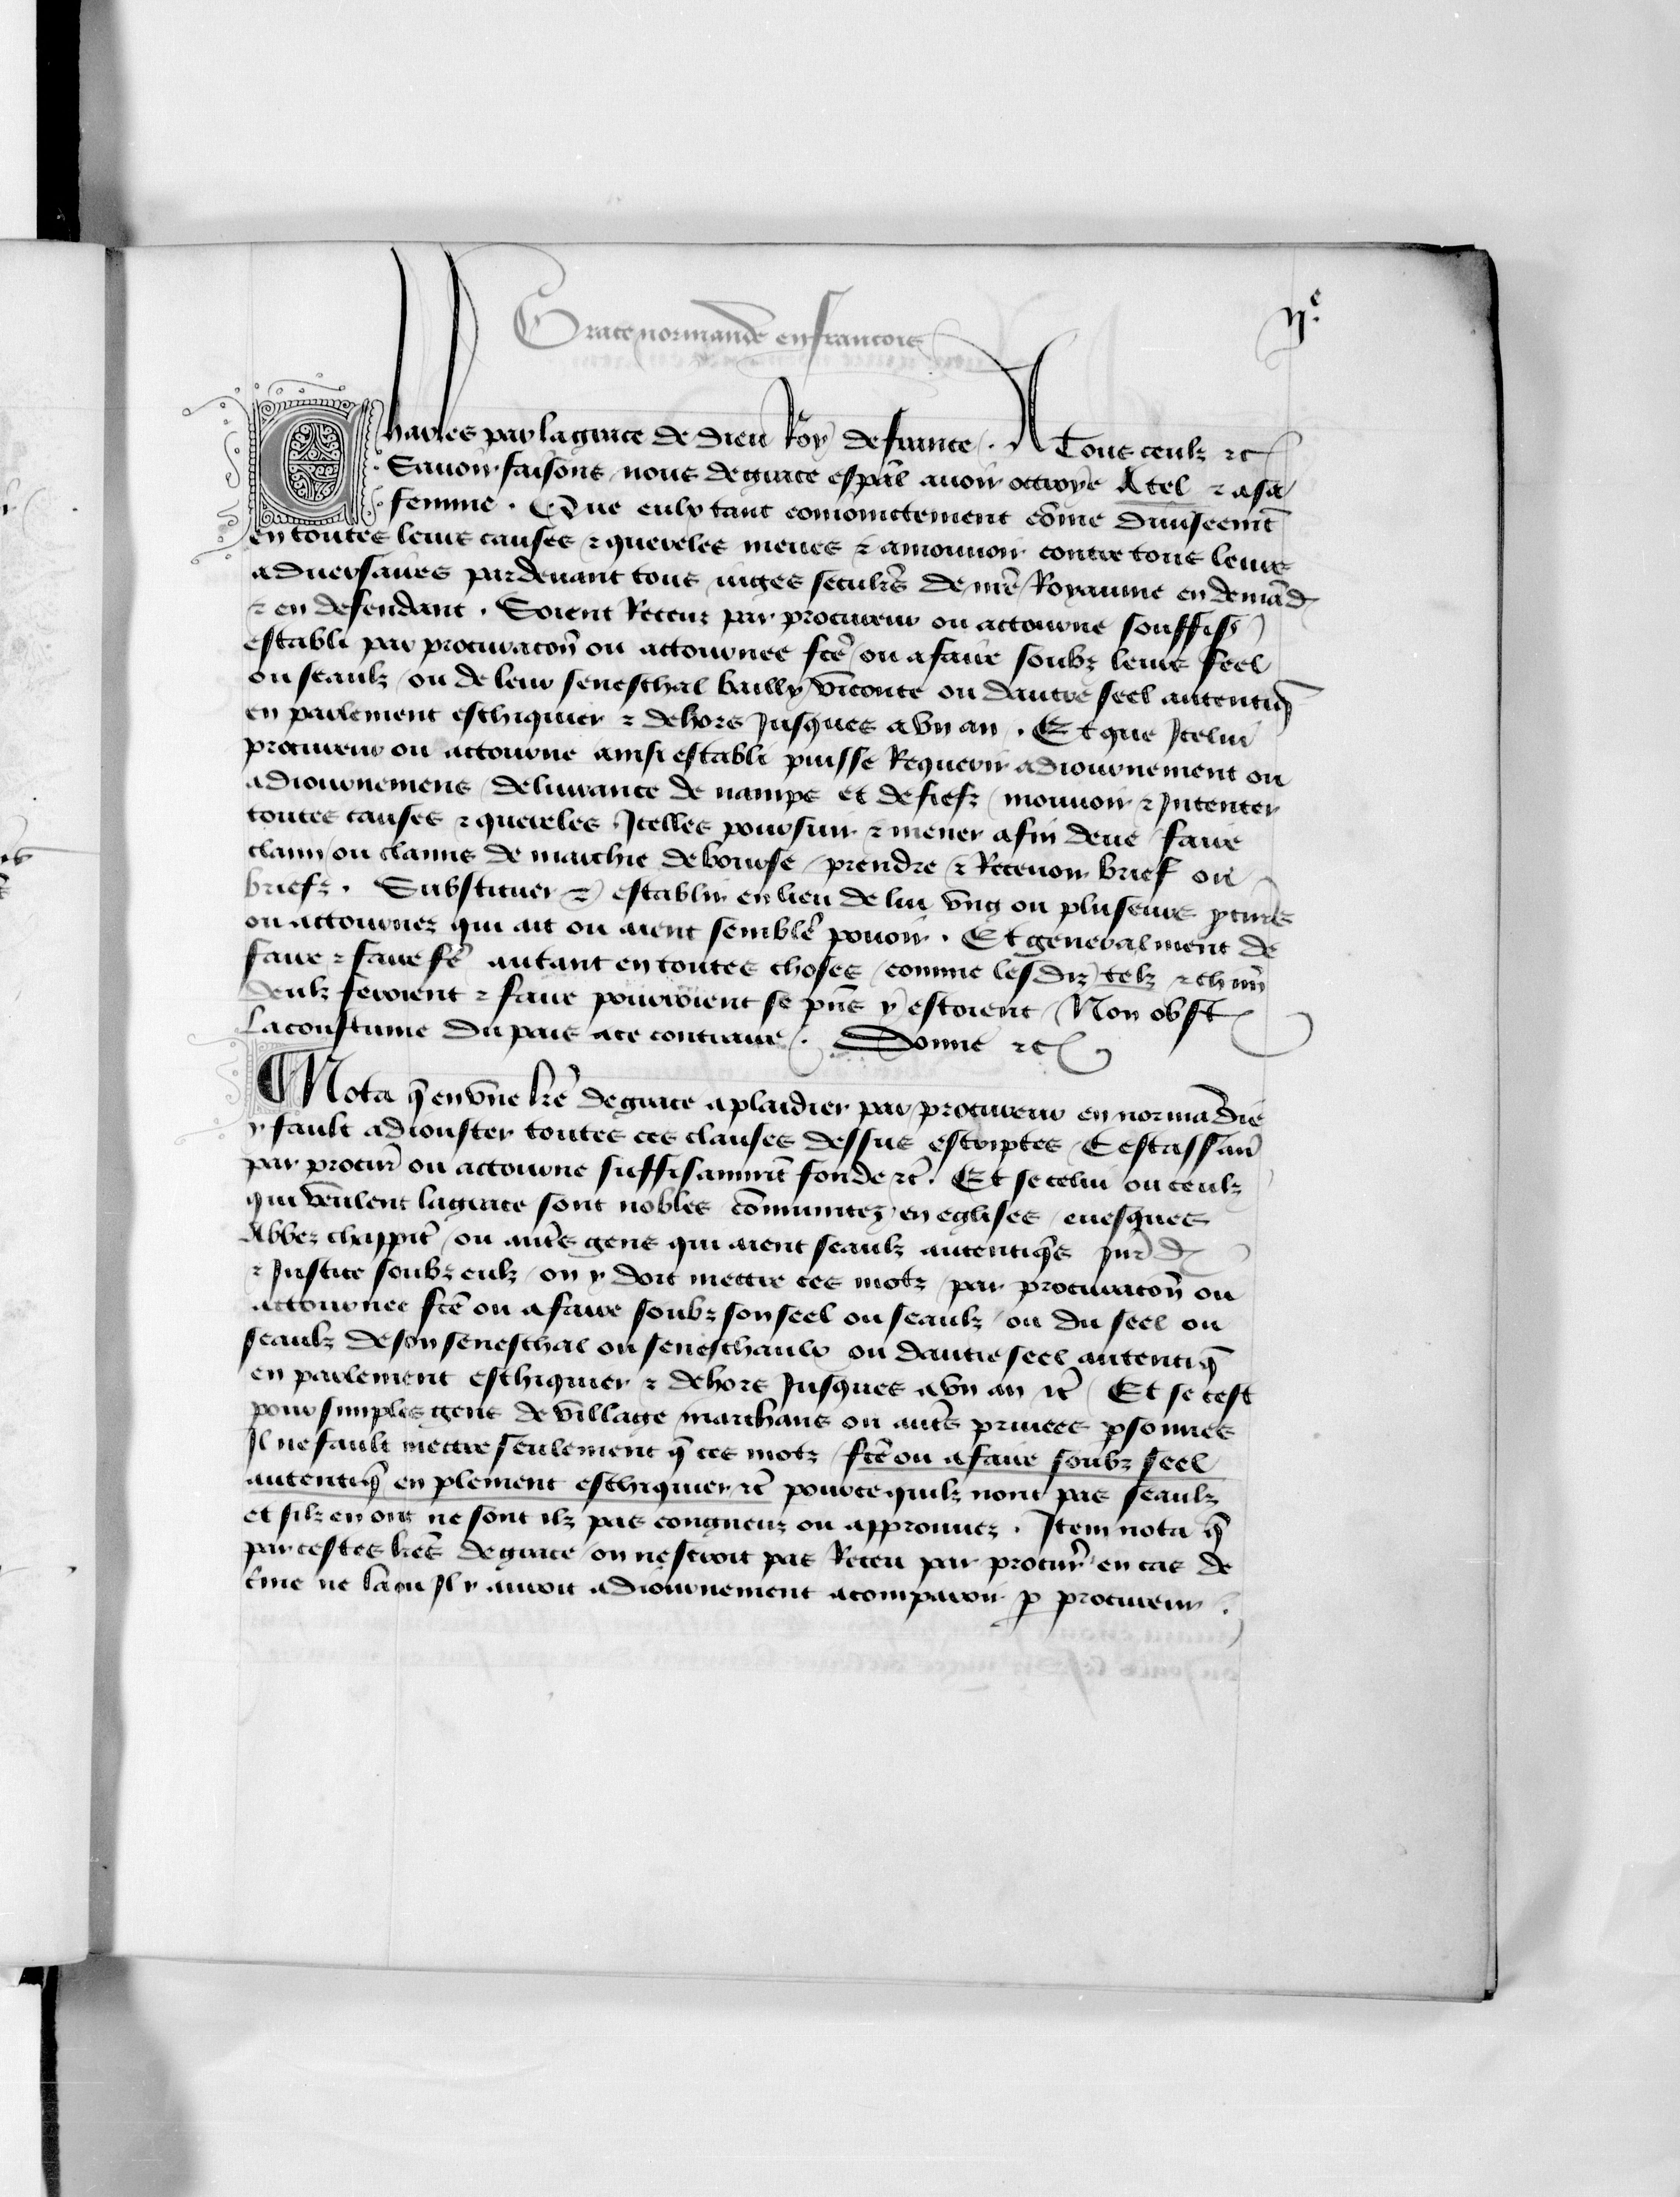 Grace normande en francois
ij.e
Charles par la grace de dieu Roy de france. A Tous ceulx etc
Sauoir faisons nous de grace esp̄al auoir octroyé A tel & a sa
femme. Que eulx tant conioinctement cōme diuiseemēt
en toutes leurs causes & quereles meues & a mouuoir contre tous leurs
aduersaires pardeuant tous iuges seculrēs de nrē Royaume en demād
& en defendant. Soient Receuz par procureur ou attourne souffis
establi par procuracoñ ou attournee fcē ou a faire soubz leurs seel
ou seaulx ou de leur seneschal bailly viconte ou dautre seel autentiq̄
en parlement eschiquier & dehors Jusques a vn an. Et que Jcelui
procureur ou attourne ainsi establi puisse Requerir adiournement ou
adiournemens deliurance de namps et de fiefz mouuoir & Jntenter
toutes causes & quereles Jcelles poursuir & mener a fin deue faire
clain ou clains de marchie de bourse prendre & Receuoir brief ou
briefz. Substituer & establir en lieu de lui vng ou pluseurs
ou attournez qui ait ou aient semblē pouoir. Et generalment de
faire & faire fē autant en toutes choses comme les diz telz & chūn
deulx feroient & faire pourroient se pn̄s y estoient Non obst
La coustume du pais a ce contraire. Donne etc
Nota q̄ en vne lrē de grace a plaidier par procureur en normādie
y fault adiouster toutes ces clauses dessus escriptes Cestassau͂
par procur̄ ou attourne suffisammēt fonde etc̄. Et se celui ou ceulx
qui veulent la grace sont nobles cōmunitez en eglises euesques
Abbez chappit̄ ou autēs gens qui aient seaulx autentiq̄s Jur̄d
& Justice soubz eulx on y doit mettre ces motz par procuracoñ ou
attournee fcē ou a faire soubz son seel ou seaulx ou du seel ou
seaulx de son seneschal ou seneschaulx ou dautre seel autentiq̄
en parlement eschiquier & dehors Jusques a vn an etc̄ Et se cest
pour simples gens de village marchans ou autēs priuees p̱sonnes
Jl ne fault mettre seulement q̄ ces motz fcē ou a faire soubz seel
autentiq̄ en p̱lement eschiquier etc̄ pource quilz nont pas seaulx
et silz en ont ne sont ilz pas congneuz ou approuuez. Jtem nota q̄
par cestes lrēs de grace on ne seroit pas Receu par procur̄ en cas de
c̄me ne la ou Jl y auroit adiournement a comparoir p̱ procureur.